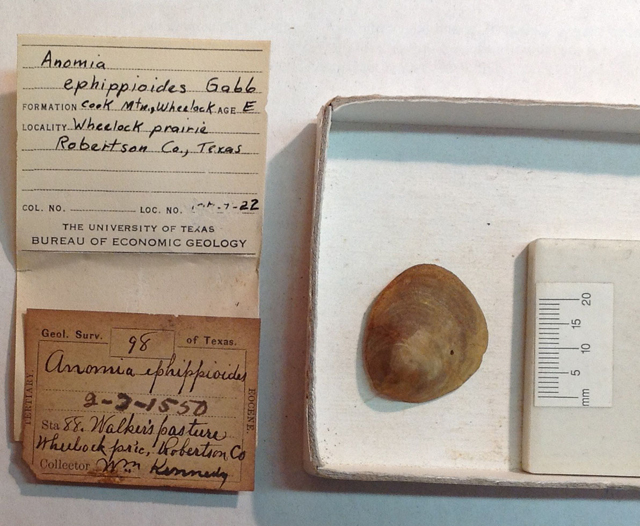 Anomia
ephippioides Gabb
FORMATION Cook Mtn., Wheelock AGE E
LOCALITY Wheelock prairie
Robertson Co., Texas
COL. NO. LOC. NO. -7-22
THE UNIVERSITY OF TEXAS
BUREAU OF ECONOMIC GEOLOGY
Geol. Surv. 98 of Texas.
Anomia ephippioides
2-7-1550
TERTIARY
EOCENE
Sta 88. Walker's pasture
Wheelock pr'ie, Robertson Co
Collector Wm Kennedy
20
15
10
5
mm